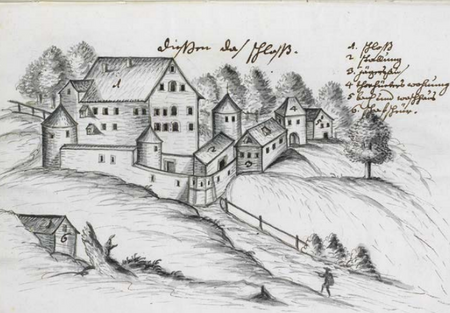 dießen das schloß.
1. schloß
2 stallung
3 jägerhaus
4 thorhüters wohnung
5 und waschhaus
6.
1
2
6